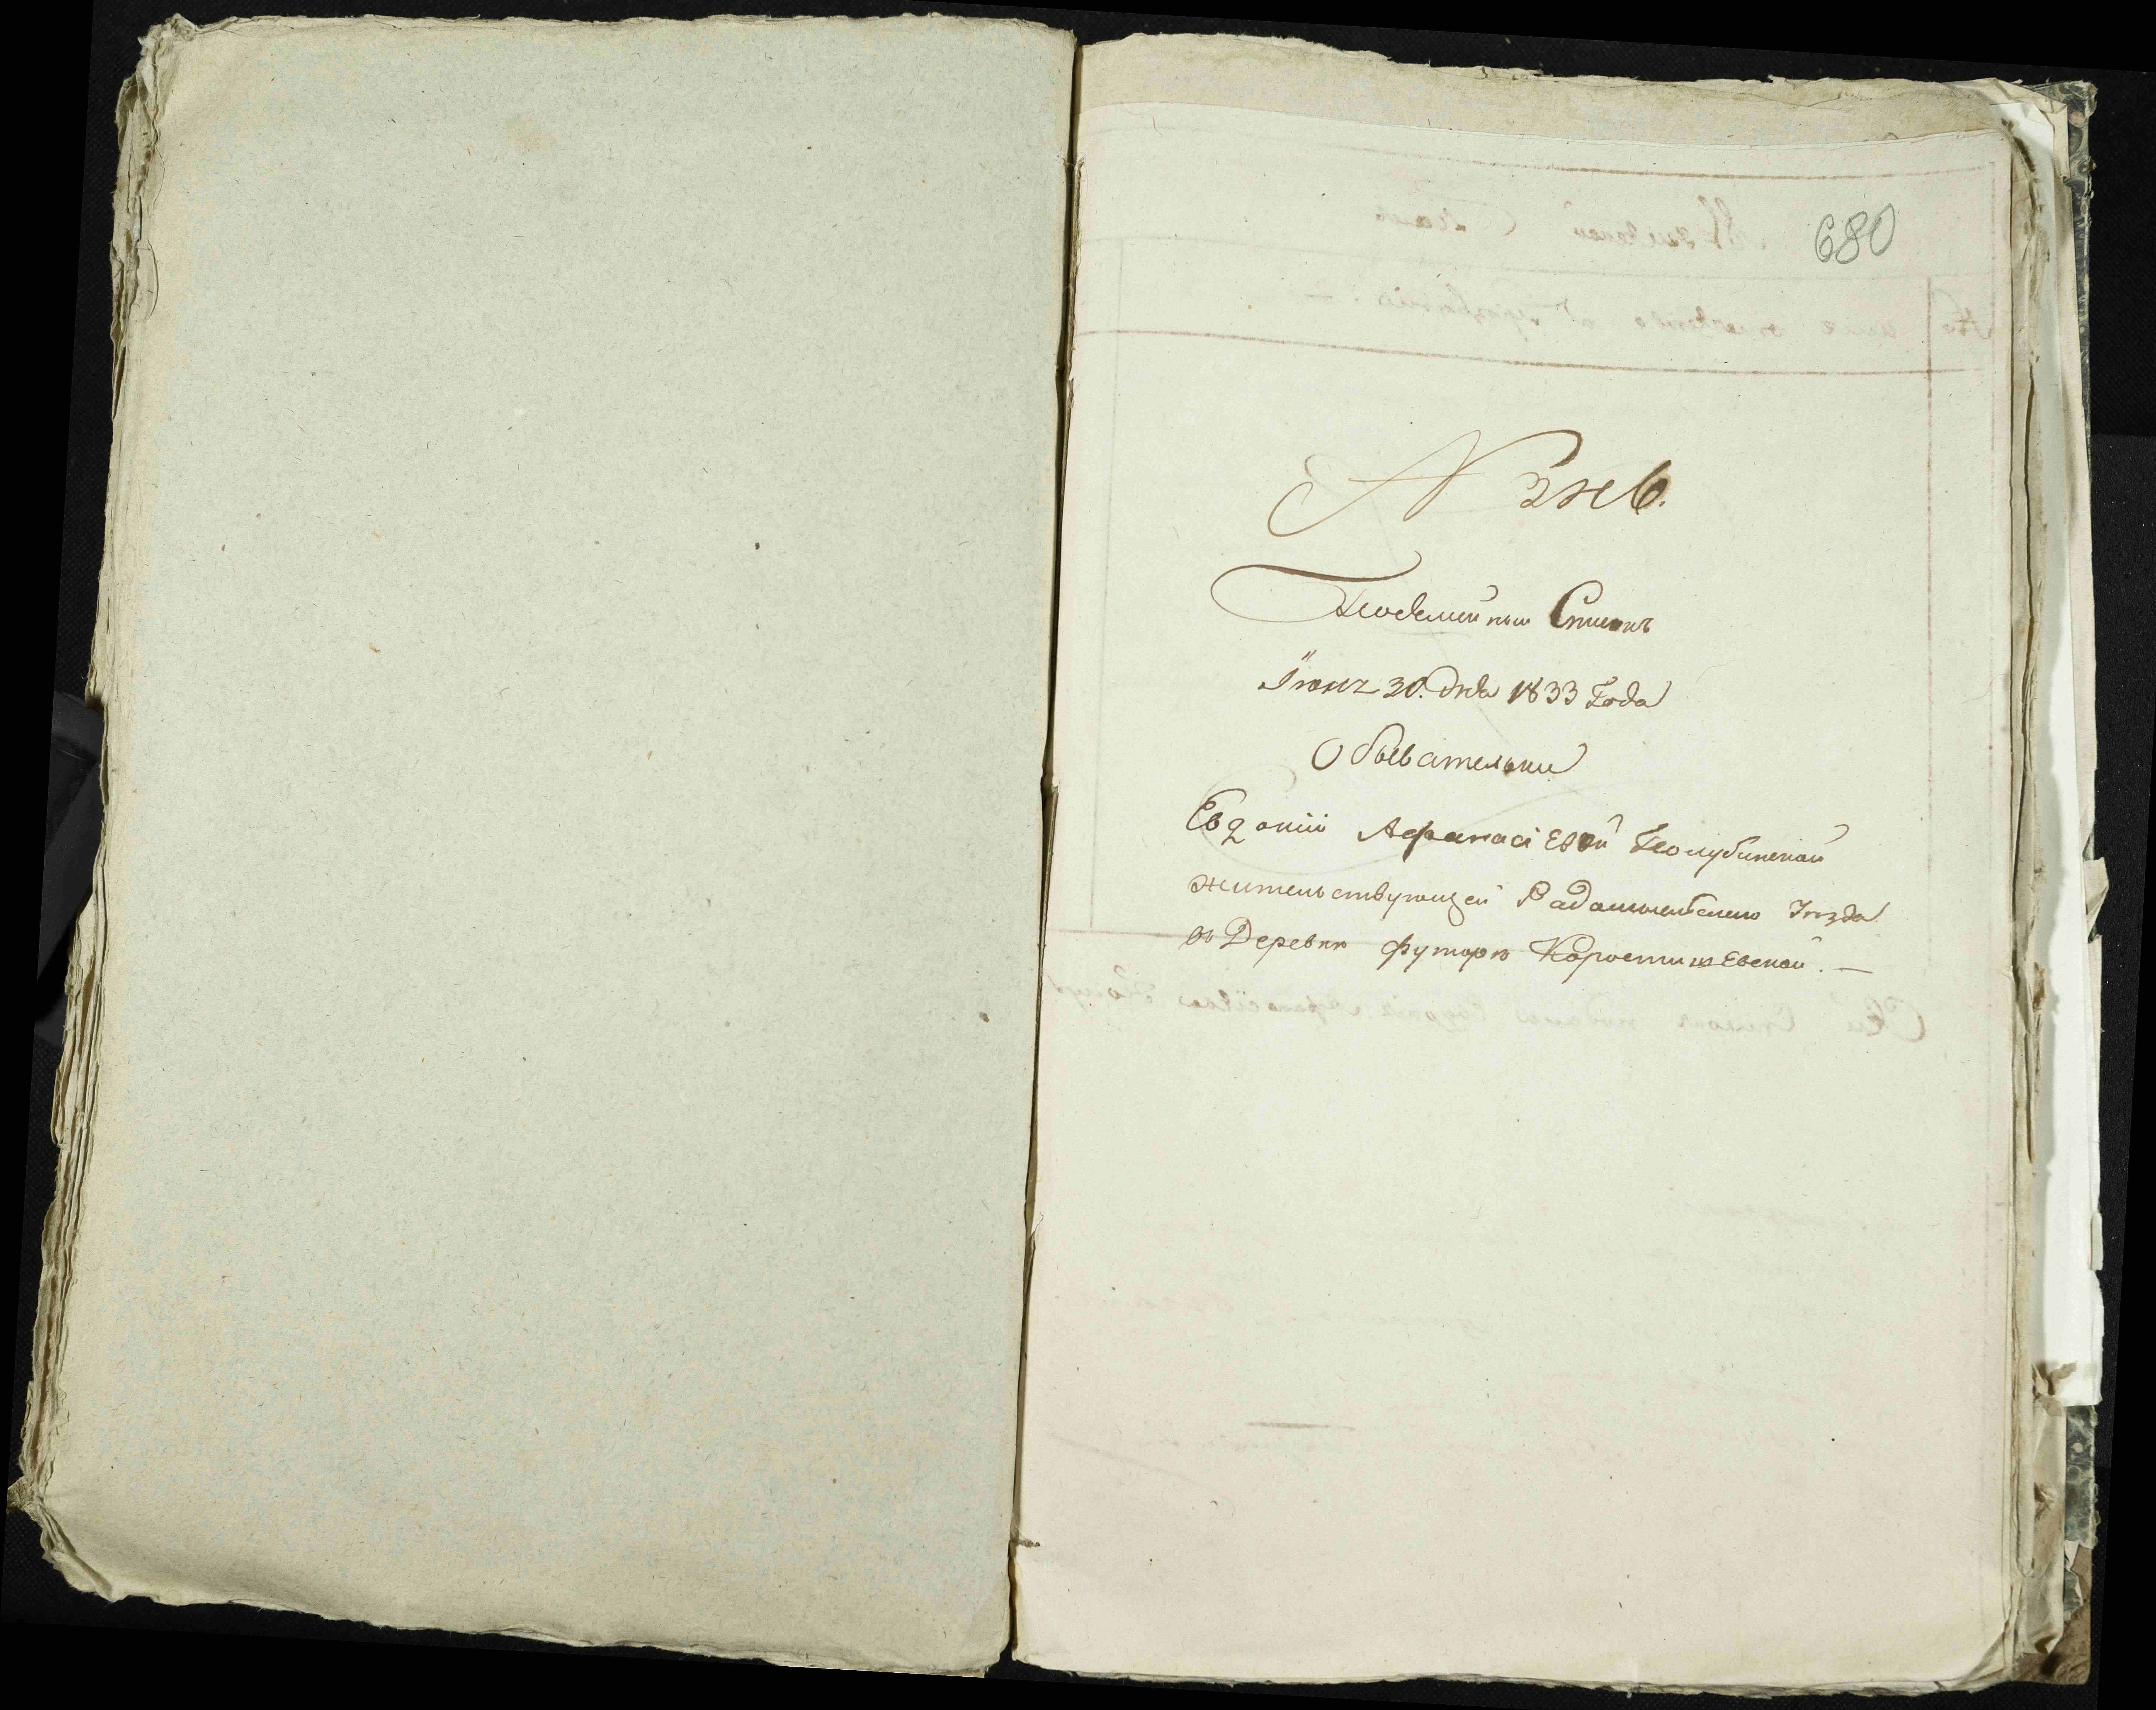 680
N
Посемейный Списокъ
Іюня 30. дня 1833 Года
Обывательки
Евдокіи Афанасіевой Голубинской
жительствующей Радомысльскаго Уезда
въ Деревни футорѣ Коростишевской. —